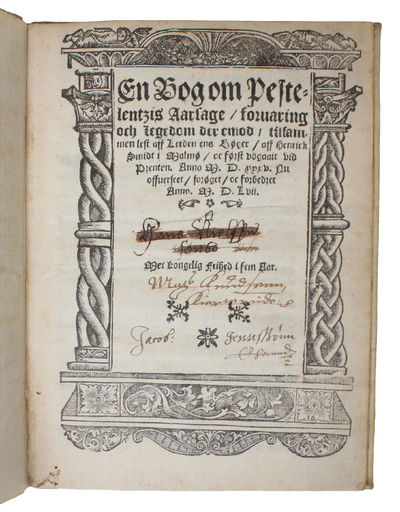 En Bog om Peste-
lentzis Aarsage / foruaring
och legedom der emod / tilsam-
men lest aff Lerden ens Bøger / aff Henrick
Smidt i Malmø / oc først vdgaait vid
Prenten. Anno M. D. xxxv. Nu
offuerseet / forøget / oc forbedret
Anno. M. D. Lvii.
Met kongelig Frihed i fem Aar.
Knudsenn
Jacob: Jenssøn